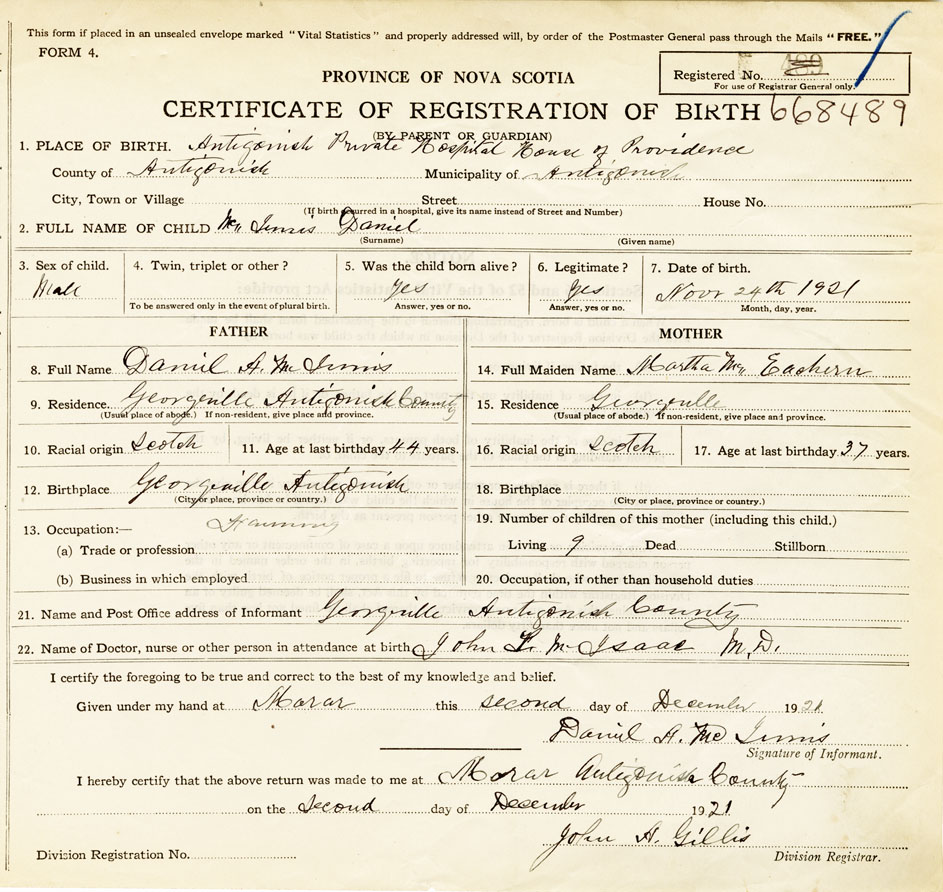 This form if placed in an unsealed envelope marked "Vital Statistics" and properly addressed will, by order of the Postmaster General pass through the Mails "FREE."
FORM 4.
PROVINCE OF NOVA SCOTIA
Registered No. 489
For use of Registrar General only.
CERTIFICATE OF REGISTRATION OF BIRTH 668489
(BY PARENT OR GUARDIAN)
1. PLACE OF BIRTH. Antigonish Private Hospital House of Providence
County of Antigonish Municipality of Antigonish
City, Town or Village Street House No.
(If birth occurred in a hospital, give its name instead of Street and Number)
2. FULL NAME OF CHILD Mc Innis Daniel
(Surname) (Given name)
3. Sex of child. 4. Twin, triplet or other? 5. Was the child born alive? 6. Legitimate? 7. Date of birth.
Male Yes Yes Novr 24th 1921
To be answered only in the event of plural birth. Answer, yes or no. Answer, yes or no. Month, day, year.
FATHER MOTHER
8. Full Name Daniel A. Mc Innis 14. Full Maiden Name Martha Mc Eachern
9. Residence. Georgeville Antigonish County 15. Residence Georgeville
(Usual place of abode.) If non-resident, give place and province. (Usual place of abode.) If non-resident, give place and province.
10. Racial origin Scotch 11. Age at last birthday 44 years. 16. Racial origin Scotch 17. Age at last birthday 37 years.
12. Birthplace Georgeville Antigonish 18. Birthplace
(City or place, province or country.) (City or place, province or country.)
13. Occupation:— Farming 19. Number of children of this mother (including this child.)
(a) Trade or profession Living 9 Dead Stillborn
(b) Business in which employed 20. Occupation, if other than household duties
21. Name and Post Office address of Informant Georgeville Antigonish County
22. Name of Doctor, nurse or other person in attendance at birth John Mc Isaac M.D.
I certify the foregoing to be true and correct to the best of my knowledge and belief.
Given under my hand at Morar this second day of December 1921
Daniel A. Mc Innis
Signature of Informant.
I hereby certify that the above return was made to me at Morar Antigonish County
on the Second day of December 1921
John A. Gillis
Division Registration No. Division Registrar.